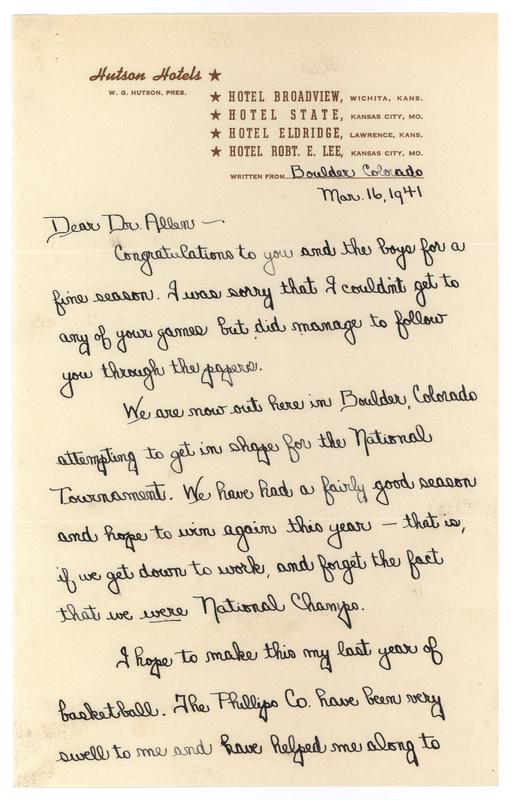 Hutson Hotels ★
W. G. HUTSON, PRES.
★ HOTEL BROADVIEW, WICHITA, KANS.
★ HOTEL STATE, KANSAS CITY, MO.
★ HOTEL ELDRIDGE, LAWRENCE, KANS.
★ HOTEL ROBT. E. LEE, KANSAS CITY, MO.
WRITTEN FROM Boulder Colorado
Mar. 16, 1941
Dear Dr. Allen —
Congratulations to you and the boys for a
fine season. I was sorry that I couldn't get to
any of your games but did manage to follow
you through the papers.
We are now out here in Boulder, Colorado
attempting to get in shape for the National
Tournament. We have had a fairly good season
and hope to win again this year — that is,
if we get down to work, and forget the fact
that we were National Champs.
I hope to make this my last year of
basketball. The Phillips Co. have been very
swell to me and have helped me along to